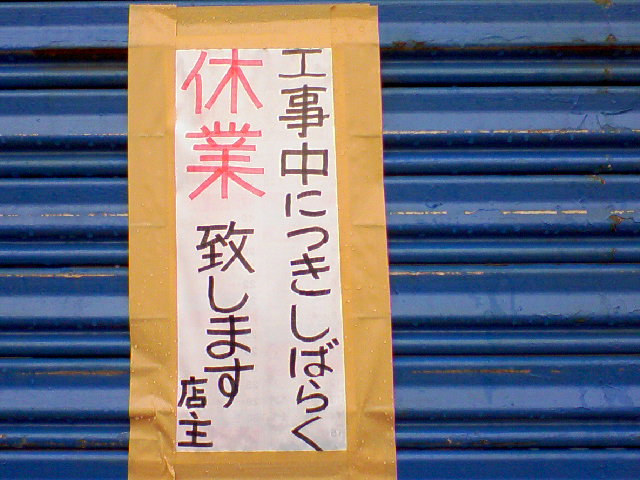 工事中につきしばらく
休業致します
店主